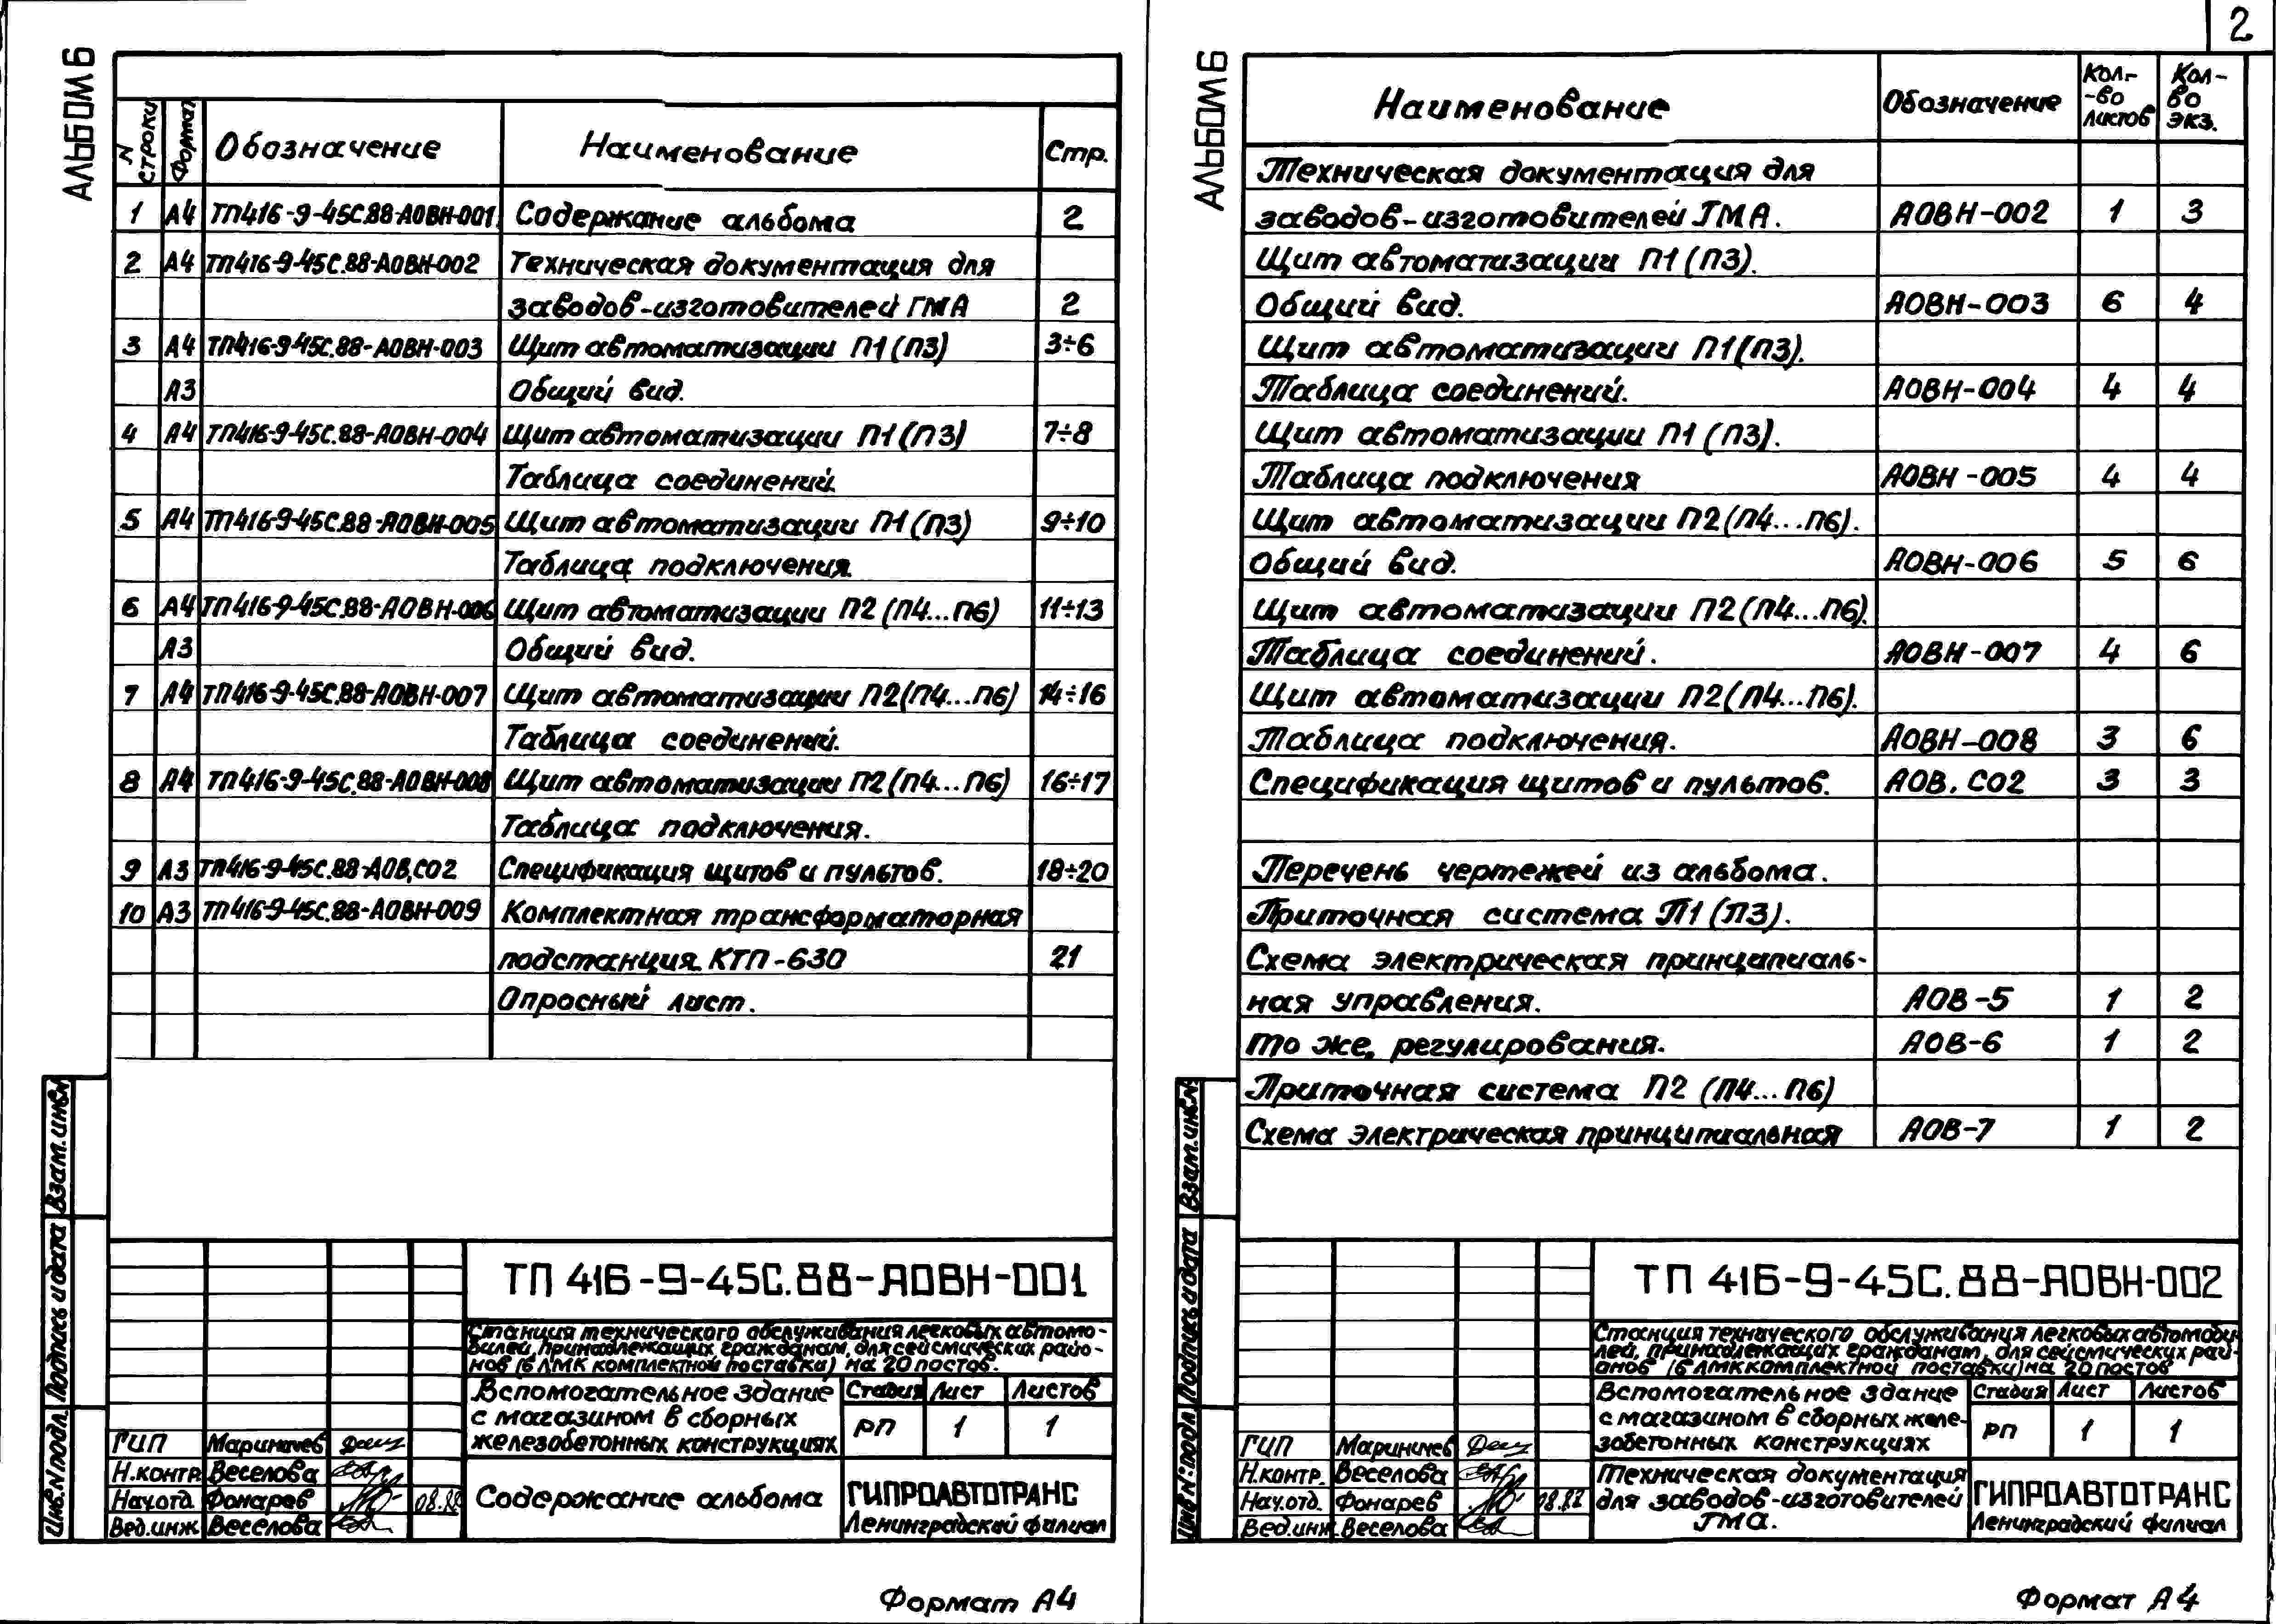 2
АЛЬБОМ 6
N строки Формат Обозначение Наименование Стр.
1 А4 ТП416-9-45С.88-АОВН-001 Содержание альбома 2
2 А4 ТП416-9-45С.88-АОВН-002 Техническая документация для
заводов-изготовителей ГМА 2
3 А4 ТП416-9-45С.88-АОВН-003 Щит автоматизации П1(П3) 3÷6
А3 Общий вид.
4 А4 ТП416-9-45С.88-АОВН-004 Щит автоматизации П1(П3) 7÷8
Таблица соединений.
5 А4 ТП416-9-45С.88-АОВН-005 Щит автоматизации П1(П3) 9÷10
Таблица подключения.
6 А4 ТП416-9-45С.88-АОВН-006 Щит автоматизации П2(П4...П6) 11÷13
А3 Общий вид.
7 А4 ТП416-9-45С.88-АОВН-007 Щит автоматизации П2(П4...П6) 14÷16
Таблица соединений.
8 А4 ТП416-9-45С.88-АОВН-008 Щит автоматизации П2(П4...П6) 16÷17
Таблица подключения.
9 А3 ТП416-9-45С.88-АОВ.СО2 Спецификация щитов и пультов. 18÷20
10 А3 ТП416-9-45С.88-АОВН-009 Комплектная трансформаторная
подстанция КТП-630 21
Опросный лист.
Взам.инв.N
Подпись и дата
Инв.N подл.
ТП 416-9-45С.88-АОВН-001
Станция технического обслуживания легковых автомо-
билей, принадлежащих гражданам, для сейсмических райо-
нов (в ЛМК комплектной поставки) на 20 постов.
Вспомогательное здание
с магазином в сборных
железобетонных конструкциях
Стадия Лист Листов
РП 1 1
ГИП Мариничев
Н.контр. Веселова
Нач.отд. Фонарев 08.88
Вед.инж. Веселова
Содержание альбома
ГИПРОАВТОТРАНС
Ленинградский филиал
Формат А4
АЛЬБОМ 6
Наименование Обозначение Кол.--во листов Кол-во экз.
Техническая документация для
заводов-изготовителей ГМА. АОВН-002 1 3
Щит автоматизации П1(П3).
Общий вид. АОВН-003 6 4
Щит автоматизации П1(П3).
Таблица соединений. АОВН-004 4 4
Щит автоматизации П1(П3).
Таблица подключения АОВН-005 4 4
Щит автоматизации П2(П4...П6).
Общий вид. АОВН-006 5 6
Щит автоматизации П2(П4...П6).
Таблица соединений. АОВН-007 4 6
Щит автоматизации П2(П4...П6).
Таблица подключения. АОВН-008 3 6
Спецификация щитов и пультов. АОВ.СО2 3 3
Перечень чертежей из альбома.
Приточная система П1(П3).
Схема электрическая принципиаль-
ная управления. АОВ-5 1 2
То же, регулирования. АОВ-6 1 2
Приточная система П2 (П4...П6)
Схема электрическая принципиальная АОВ-7 1 2
Взам.инв.N
Подпись и дата
Инв.N:подл.
ТП 416-9-45С.88-АОВН-002
Станция технического обслуживания легковых автомоби-
лей, принадлежащих гражданам, для сейсмических рай-
онов (в ЛМК комплектной поставки) на 20 постов
Вспомогательное здание
с магазином в сборных желе-
зобетонных конструкциях
Стадия Лист Листов
РП 1 1
ГИП Мариничев
Н.контр. Веселова
Нач.отд. Фонарев 08.88
Вед.инж. Веселова
Техническая документация
для заводов-изготовителей
ГМА.
ГИПРОАВТОТРАНС
Ленинградский филиал
Формат А4